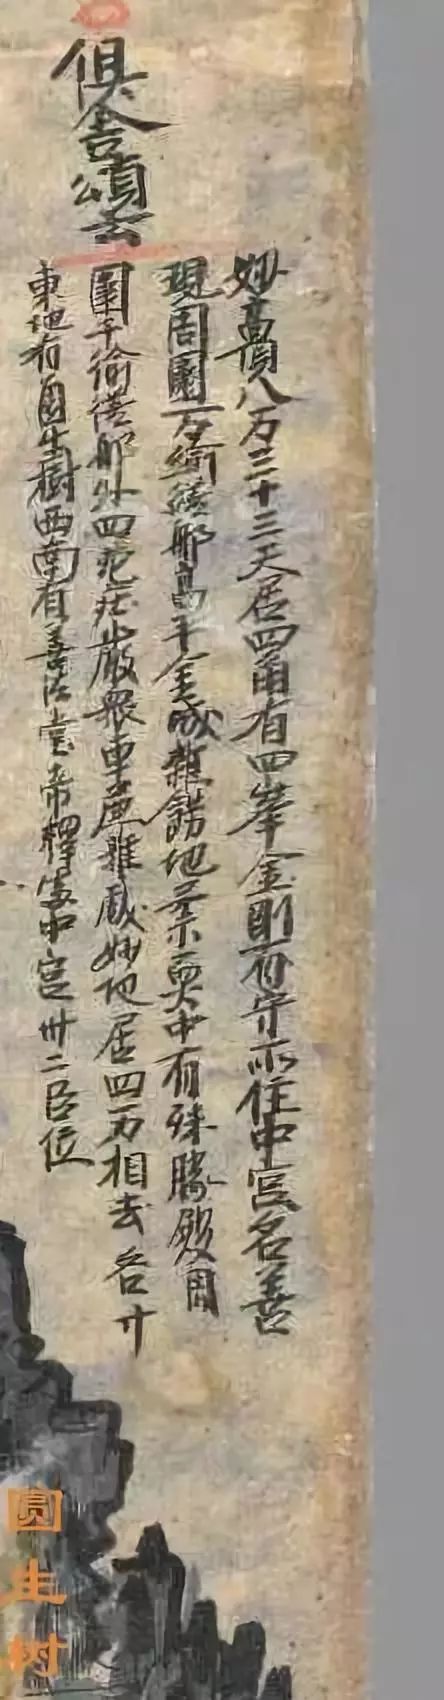 俱舍頌云
妙高頂八万三十三天居四角有四峯金剛守住中宮名善
現周圍一万踰繕那高千金城雜餝地柔耎中有殊勝殿周
圍千踰繕那外四苑庄嚴眾車麁雜妙地居四方相去各廾
東地有圓生樹西南有善法堂帝釋處中宮卅二臣位
圆生树